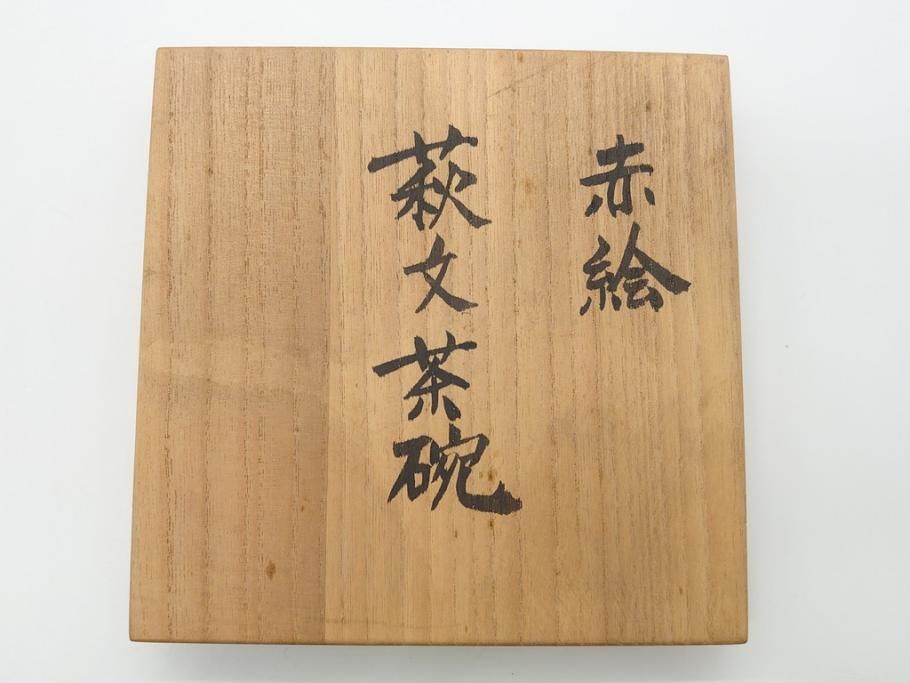 赤絵
萩文茶碗